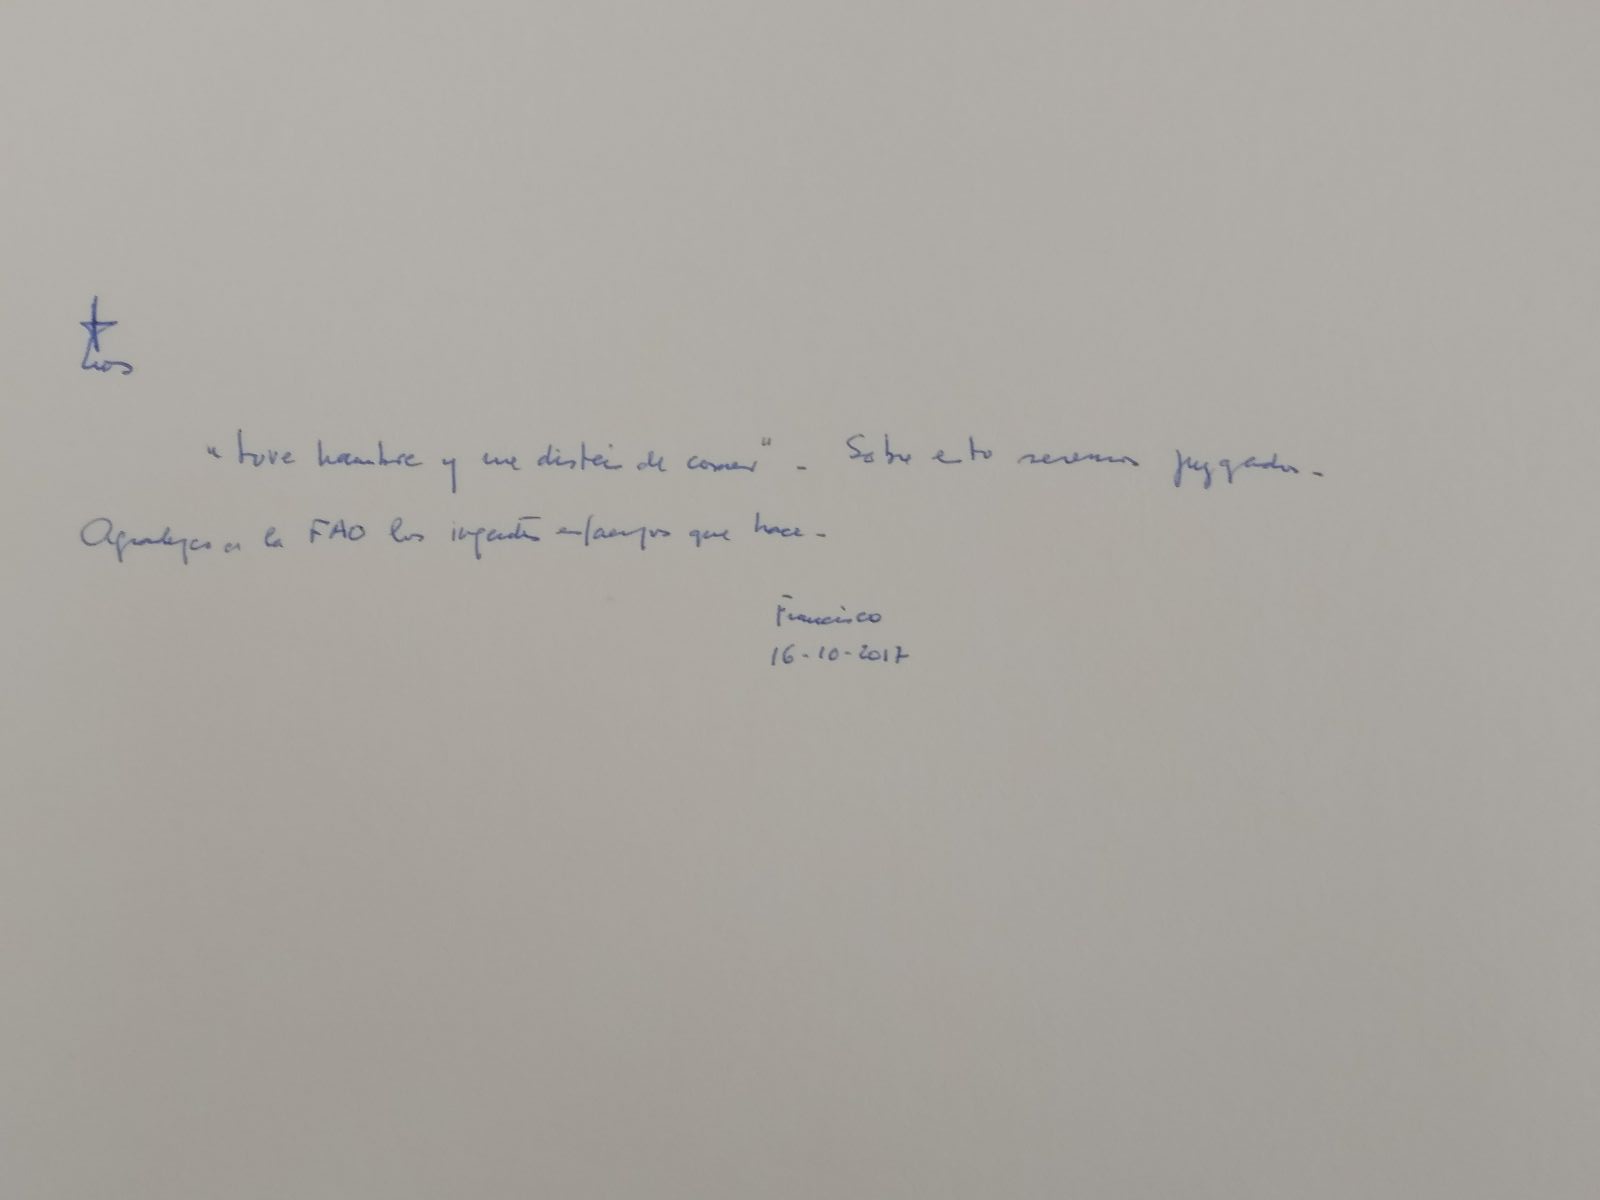 "tuve hambre y me disteis de comer" - Sobre esto seremos juzgados -
Agradezco a la FAO los ingentes esfuerzos que hace -
Francisco
16-10-2017